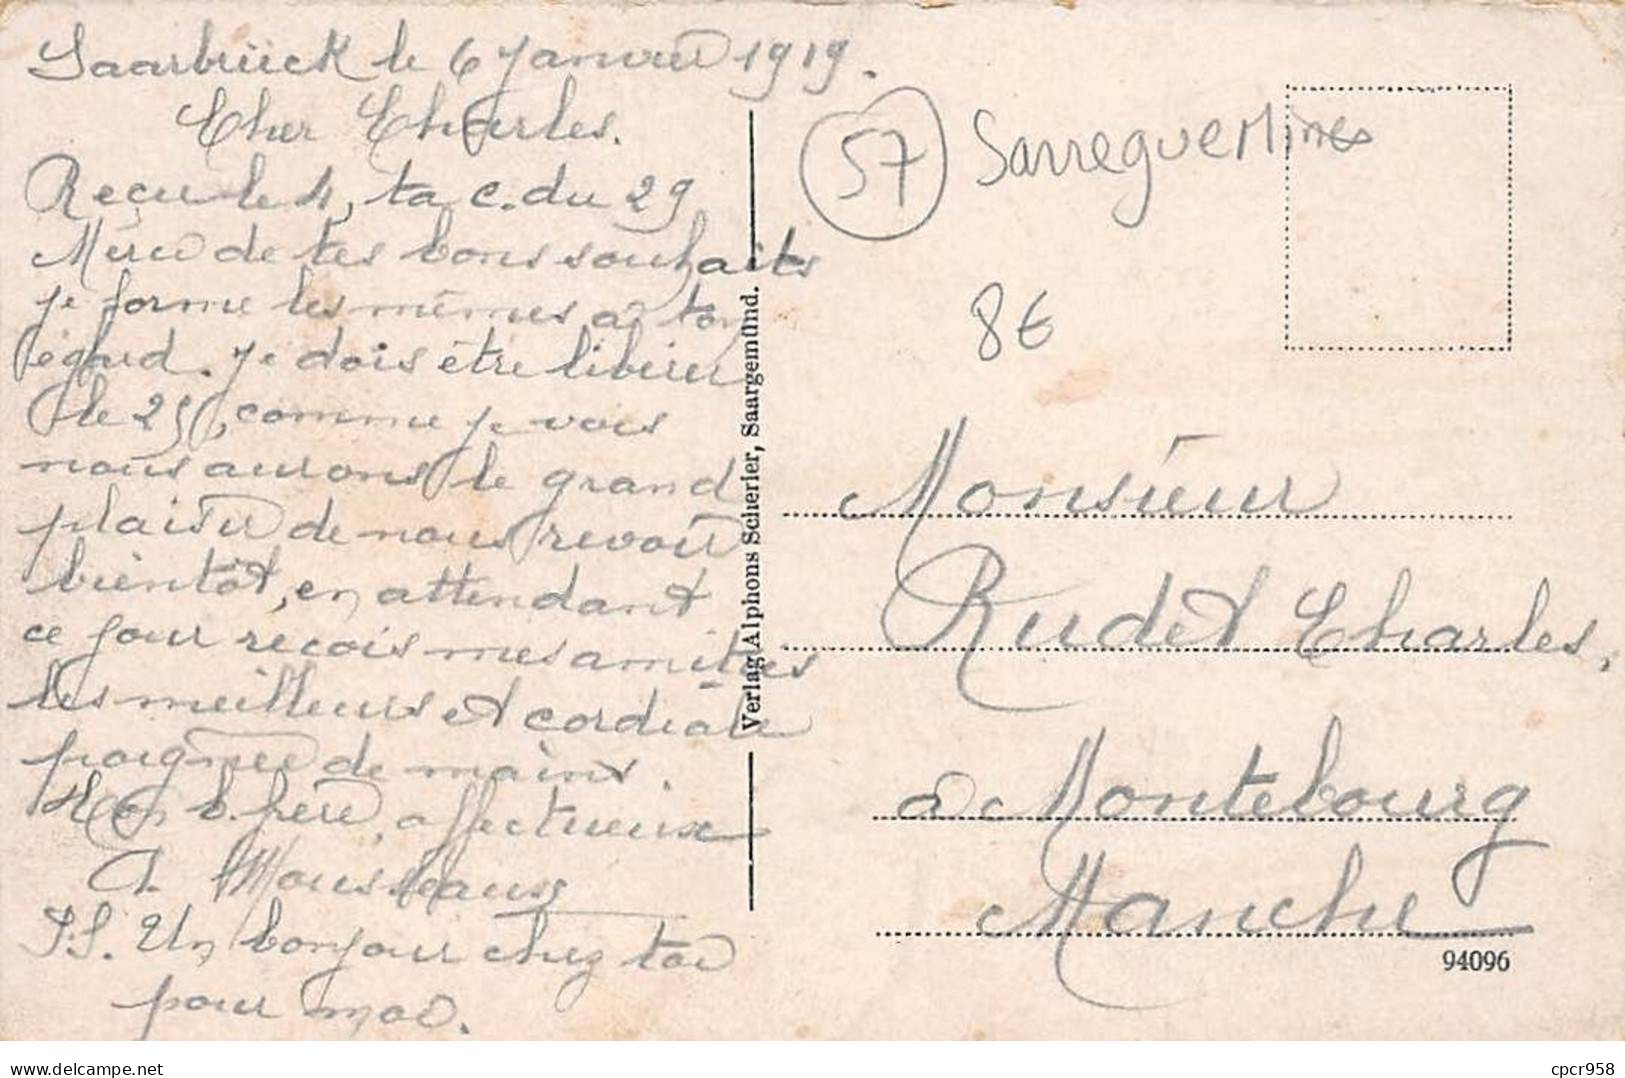 Saarbrück le 6 Janvier 1919.
Cher Charles.
Reçu le 4, ta c. du 29
Merci de tes bons souhaits
je forme les mêmes à ton
égard. Je dois être libérer
le 25, comme je vois
nous aurons le grand
plaisir de nous revoir
bientôt, en attendant
ce jour reçois mes amitiés
les meilleurs et cordiale
poignée de mains.
Ton b. frère, affectueux
A. Mousseaux
P.S. Un bonjour chez toi
pour moi.
Verlag Alphons Scherier, Saargemünd.
57 Sarreguemines
8€
Monsieur
Rudet Charles,
à Montebourg
Manche
94096
delcampe.net
cpcr958